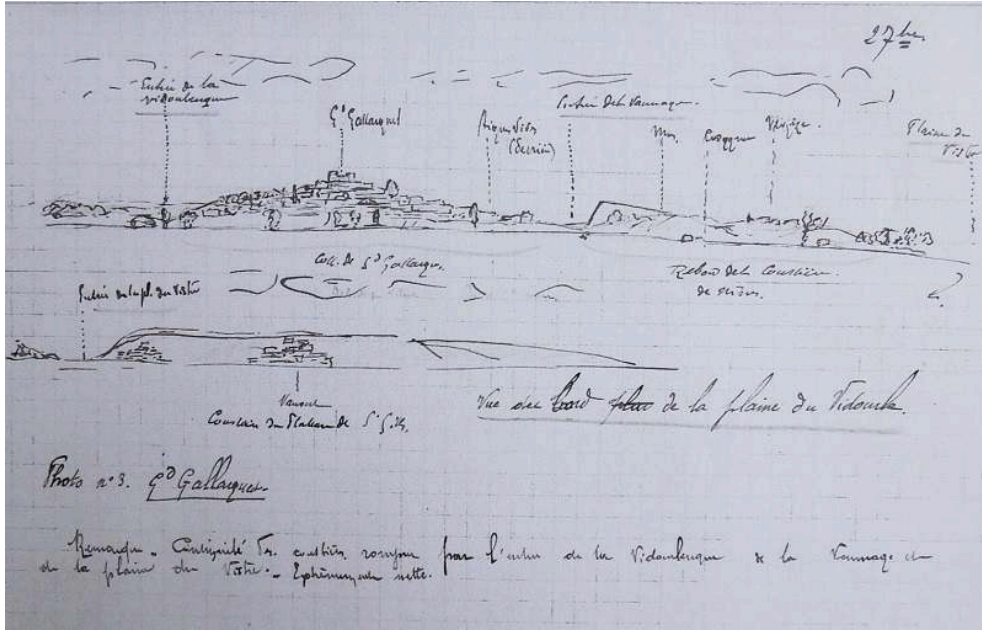 27 bis
Entrée de la
Vidourlenque
Gd Gallargues
Aigues Vives
(Derrière)
Entrée de la Vaunage
Mus
Vergèze
Plaine du
Vistre
Coll. de Gd Gallargues
Rebord de la Coustière
Entrée de la pl. du Vistre
Coustière du Plateau de St Gilles
Vue du bord de la plaine du Vidourle.
Photo n° 3. Gd Gallargues
Remarque - Continuité des coustières rompue par l'entrée de la Vidourlenque & la Vaunage et
de la plaine du Vistre. - nette.